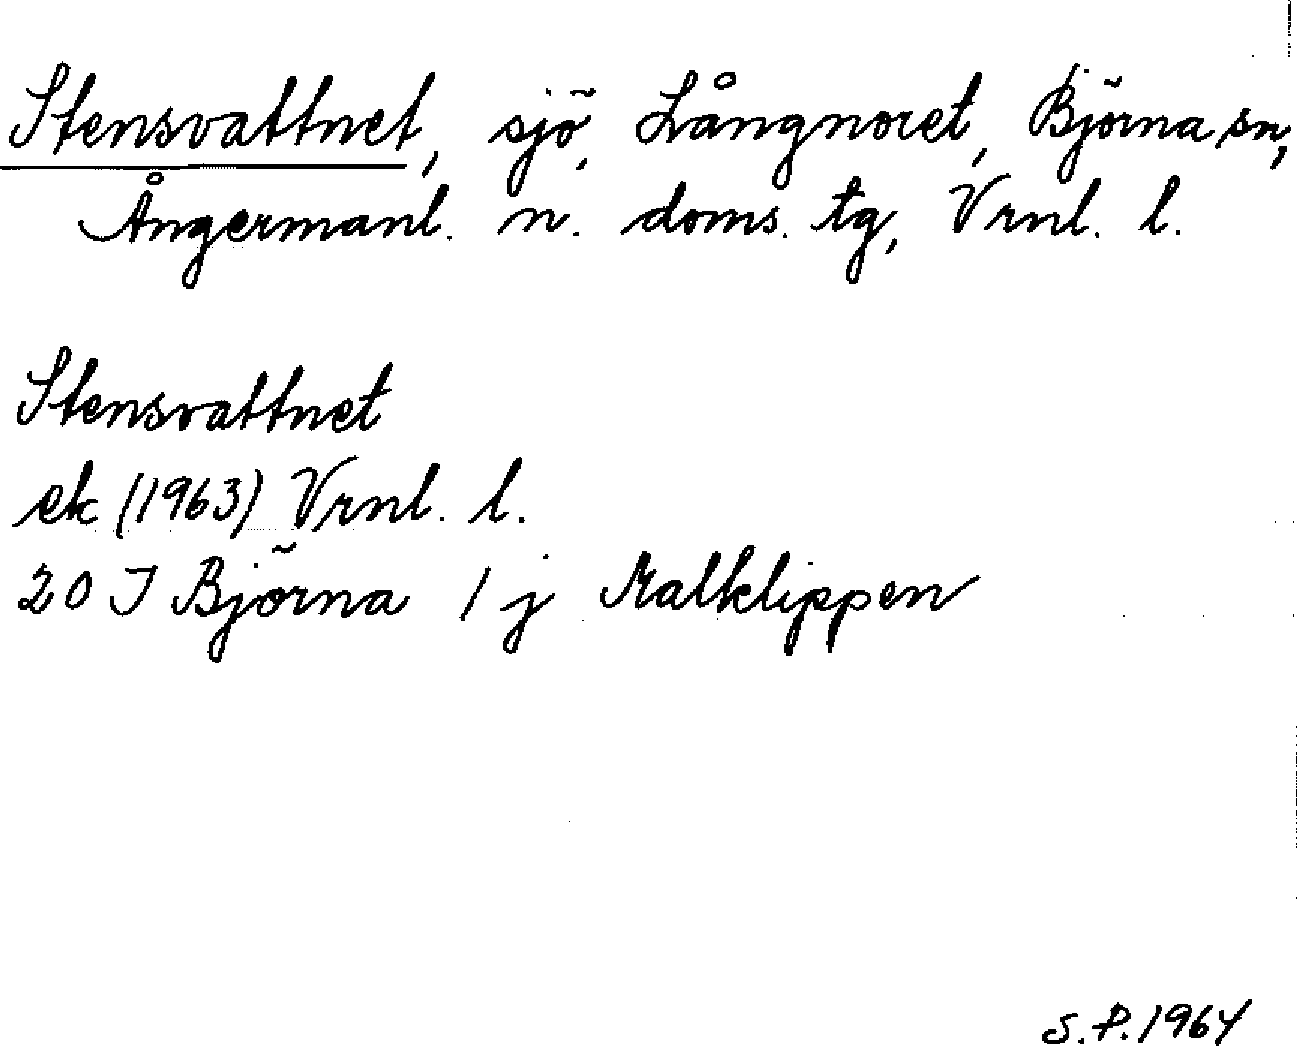 Stensvattnet, sjö, Långnoret, Björna sn,
Ångermanl. n. doms. tg, Vrnl. l.
Stensvattnet
ek (1963) Vrnl. l.
20 I Björna 1 j Malklippen
S.P. 1964